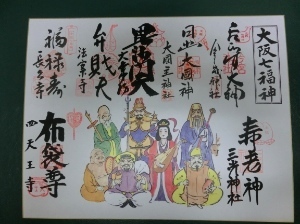 大阪七福神
今宮戎神社
日出大國神
大國主神社
毘沙門天
大乗坊
弁財天
法案寺
福禄寿
長久寺
寿老神
三光神社
布袋尊
四天王寺